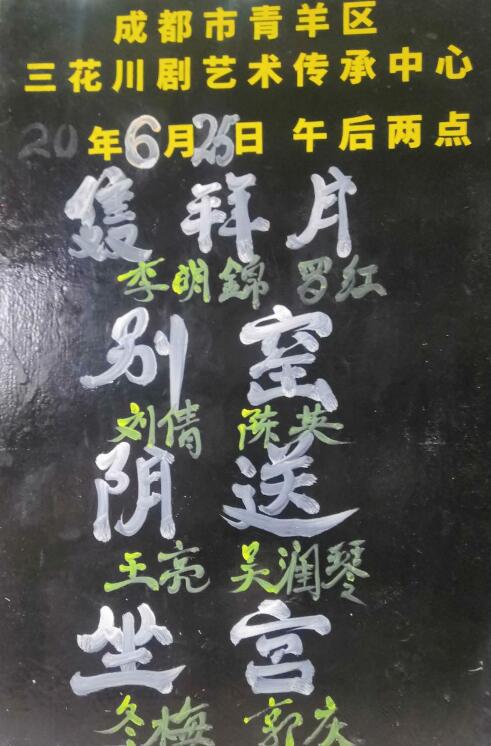 成都市青羊区
三花川剧艺术传承中心
20 年6月25日 午后两点
拜月
李明錦 罗红
别窑
刘倩 陈英
阴送
王亮 吴润琴
坐宫
冬梅 郭庆